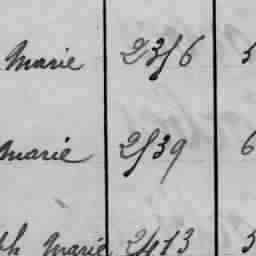 Marie 2356 5
Marie 2539 6
ph Marie 2413 5